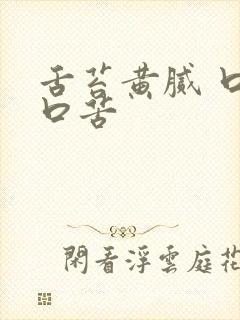 舌苔黄腻 口
口苦
閑看浮雲庭花